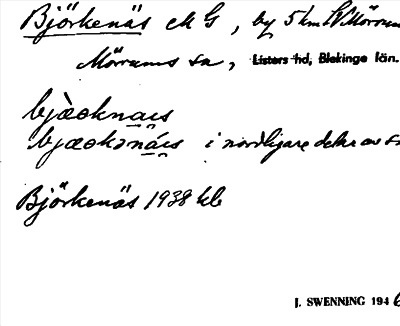 Björkenäs ck G, by 5 km SV Mörrum
Mörrums sn, Listers hd, Blekinge län.
bjæoknais
bjæokənáis i nordligare delar av sn
Björkenäs 1938 kb
J. SWENNING 1946